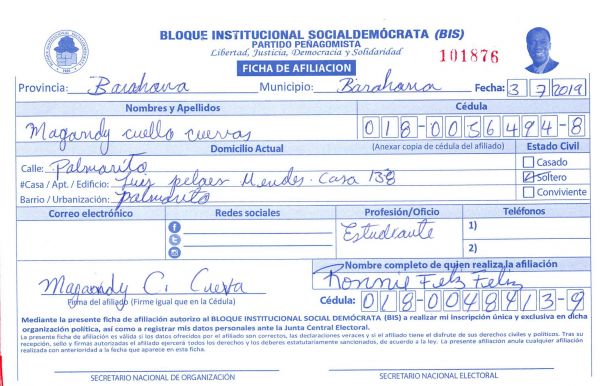 BLOQUE INSTITUCIONAL SOCIALDEMÓCRATA (BIS)
PARTIDO PEÑAGOMISTA
Libertad, Justicia, Democracia y Solidaridad
101876
FICHA DE AFILIACION
Provincia: Barahona Municipio: Barahona Fecha: 3 7 2019
Nombres y Apellidos Cédula
Magandy cuello cuevas 018-0056494-8
Domicilio Actual (Anexar copia de cédula del afiliado) Estado Civil
Calle: Palmarito Casado
#Casa / Apt. / Edificio: Luis pelaez Mendes. Casa 138 Soltero
Barrio / Urbanización: palmarito Conviviente
Correo electrónico Redes sociales Profesión/Oficio Teléfonos
Estudiante 1)
2)
Nombre completo de quien realiza la afiliación
Magandy C. Cueva Ronnie Feliz Feliz
Firma del afiliado (Firme igual que en la Cédula) Cédula: 018-0048413-9
Mediante la presente ficha de afiliación autorizo al BLOQUE INSTITUCIONAL SOCIAL DEMÓCRATA (BIS) a realizar mi inscripción única y exclusiva en dicha
organización política, así como a registrar mis datos personales ante la Junta Central Electoral.
La presente ficha de afiliación es válida si los datos ofrecidos por el afiliado son correctos, las declaraciones veraces y si el afiliado tiene el disfrute de sus derechos civiles y políticos. Tras su
recepción, sello y firmas autorizadas el afiliado ejercerá todos los derechos y los deberes estatutariamente sancionados, de acuerdo a la ley. La presente afiliación anula cualquier afiliación
realizada con anterioridad a la fecha que aparece en esta ficha.
SECRETARIO NACIONAL DE ORGANIZACIÓN SECRETARIO NACIONAL ELECTORAL